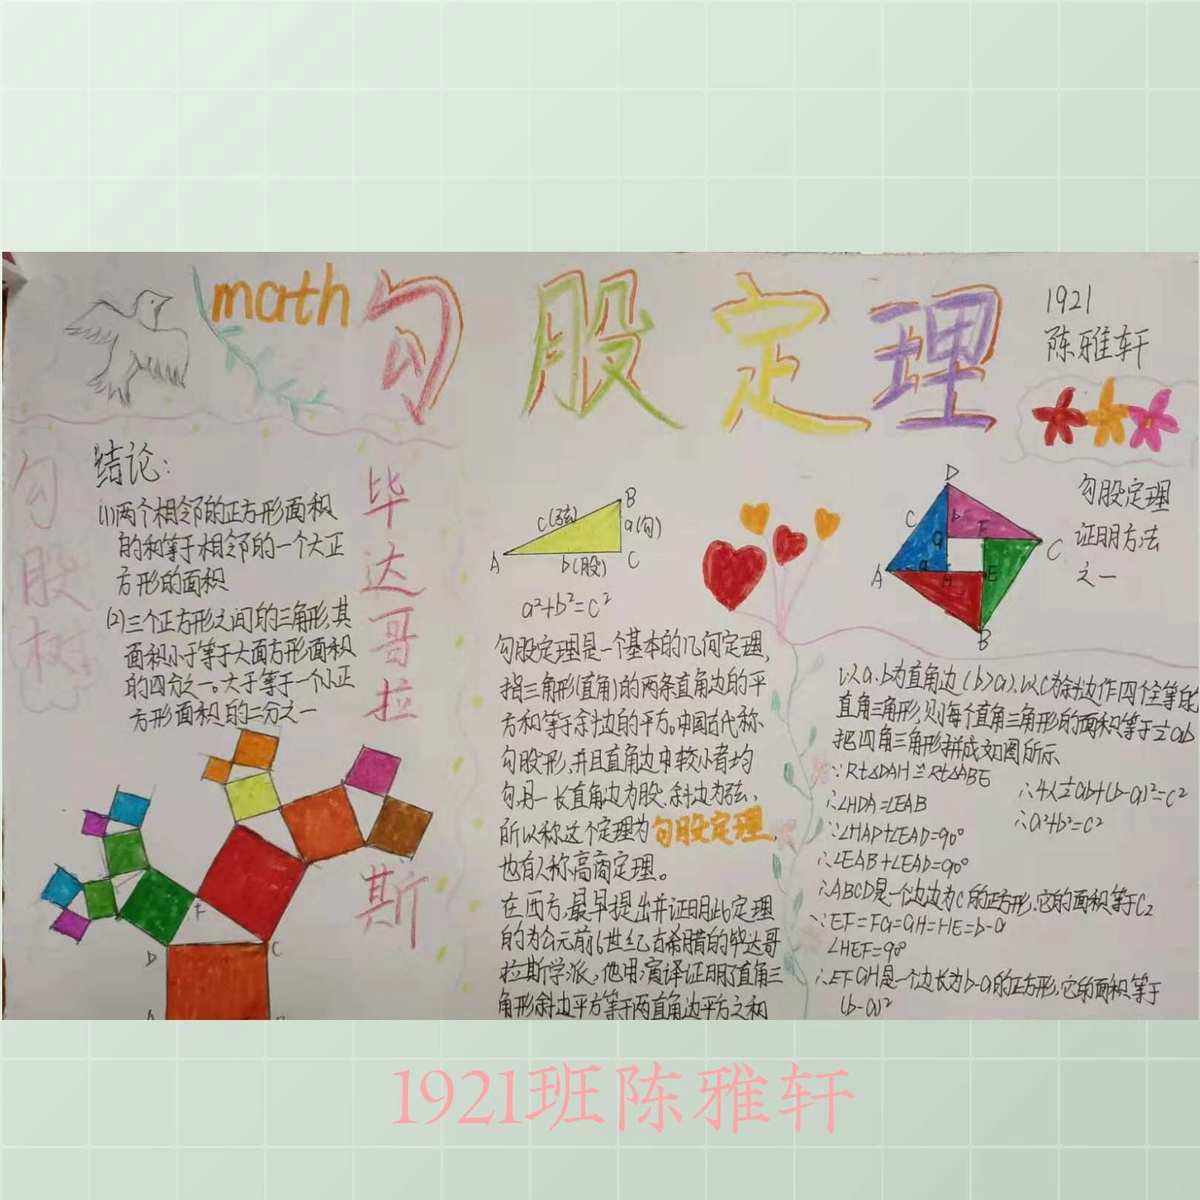 math
勾股定理
1921
陈雅轩
勾股树
结论:
(1)两个相邻的正方形面积
的和等于相邻的一个大正
方形的面积
(2)三个正方形之间的三角形,其
面积小于等于大面方形面积
的四分之一。大于等于一个小正
方形面积的二分之一
D
F
C
毕达哥拉斯
A
B
C
c(弦)
a(勾)
b(股)
a²+b²=c²
勾股定理是一个基本的几何定理,
指三角形(直角)的两条直角边的平
方和等于斜边的平方。中国古代称
勾股形,并且直角边中较小者均
勾,另一长直角边为股,斜边为弦,
所以称这个定理为勾股定理,
也有人称高商定理。
在西方,最早提出并证明此定理
的为公元前6世纪古希腊的毕达哥
拉斯学派,他用演译证明了直角三
角形斜边平方等于两直角边平方之和
D
C
b
F
a
C
A
a
H
E
B
勾股定理
证明方法
之一
以a.b为直角边(b>a),以C为斜边作四个全等的
直角三角形,则每个直角三角形的面积等于½ab
把四角三角形拼成如图所示
∵Rt△DAH≌Rt△ABE
∴∠HDA=∠EAB
∵∠HAD+∠EAD=90°
∴∠EAB+∠EAD=90°
∴ABCD是一个边边为C的正方形,它的面积等于C2
∵EF=FG=GH=HE=b-a
∠HEF=90°
∴EFGH是一个边长为b-a的正方形,它的面积等于
(b-a)²
∴4×½ab+(b-a)²=c²
∴a²+b²=c²
1921班陈雅轩